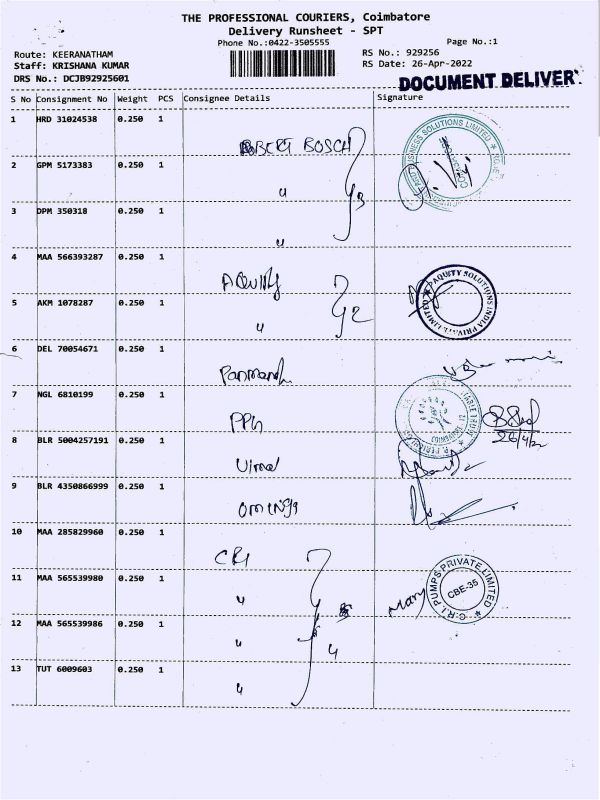 THE PROFESSIONAL COURIERS, Coimbatore
Delivery Runsheet - SPT
Phone No.:0422-3505555
Page No.:1
Route: KEERANATHAM
RS No.: 929256
Staff: KRISHANA KUMAR
RS Date: 26-Apr-2022
DRS No.: DCJB92925601
DOCUMENT DELIVER
S No Consignment No Weight PCS Consignee Details Signature
1 HRD 31024538 0.250 1
BOSCH
2 GPM 5173383 0.250 1
"
3
3 DPM 350318 0.250 1
"
4 MAA 566393287 0.250 1
AQUITY SOLUTIONS INDIA PRIVATE LIMITED
5 AKM 1078287 0.250 1
"
2
6 DEL 70054671 0.250 1
7 NGL 6810199 0.250 1
26/4/22
8 BLR 5004257191 0.250 1
Vimal
9 BLR 4350866999 0.250 1
10 MAA 285829960 0.250 1
CRI
11 MAA 565539980 0.250 1
"
Mary
C.R.I. PUMPS PRIVATE LIMITED
CBE-35
12 MAA 565539986 0.250 1
"
4
13 TUT 6009603 0.250 1
"